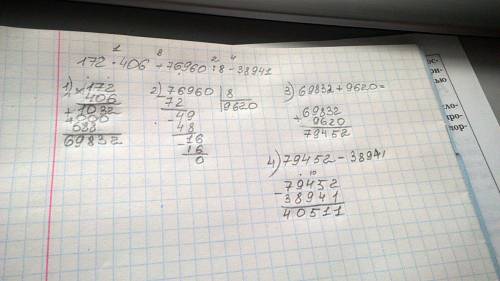 1 3 2 4
172 · 406 + 76960 : 8 - 38941
1) × 172
406
+ 1032
000
688
69832
2) 76960 | 8
72 9620
- 49
48
- 16
16
0
3) 69832 + 9620 =
+ 69832
9620
79452
4) 79452 - 38941
10
- 79452
38941
40511